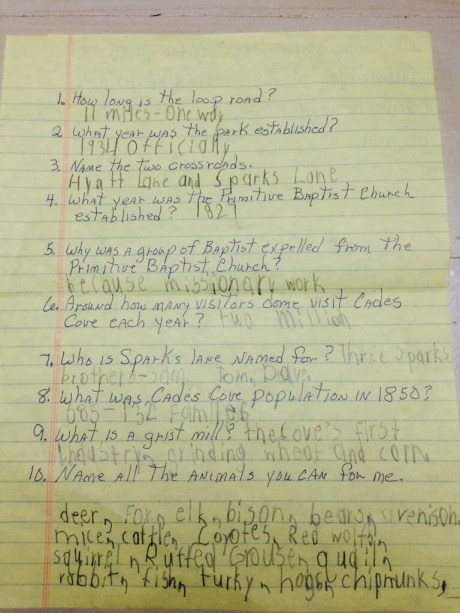 1. How long is the loop road?
11 miles - One way
2. What year was the park established?
1934 Officially
3. Name the two crossroads.
Hyatt Lane and Sparks Lane
4. What year was the Primitive Baptist Church
established? 1827
5. Why was a group of Baptist expelled from the
Primitive Baptist Church?
because missionary work
6. Around how many visitors come visit Cades
Cove each year? two million
7. Who is Sparks lane named for? Three Sparks
brothers - Sam, Tom, Dave
8. What was Cades Cove population in 1850?
685-132 Families
9. What is a grist mill? the Cove's first
industry, grinding wheat and corn
10. Name all the animals you can for me.
deer, Fox, elk, bison, bears, venison,
mice, cattle, Coyotes, Red wolfs,
squirrel, Ruffed Grouse, quail,
rabbit, fish, turky, hogs, chipmunks,